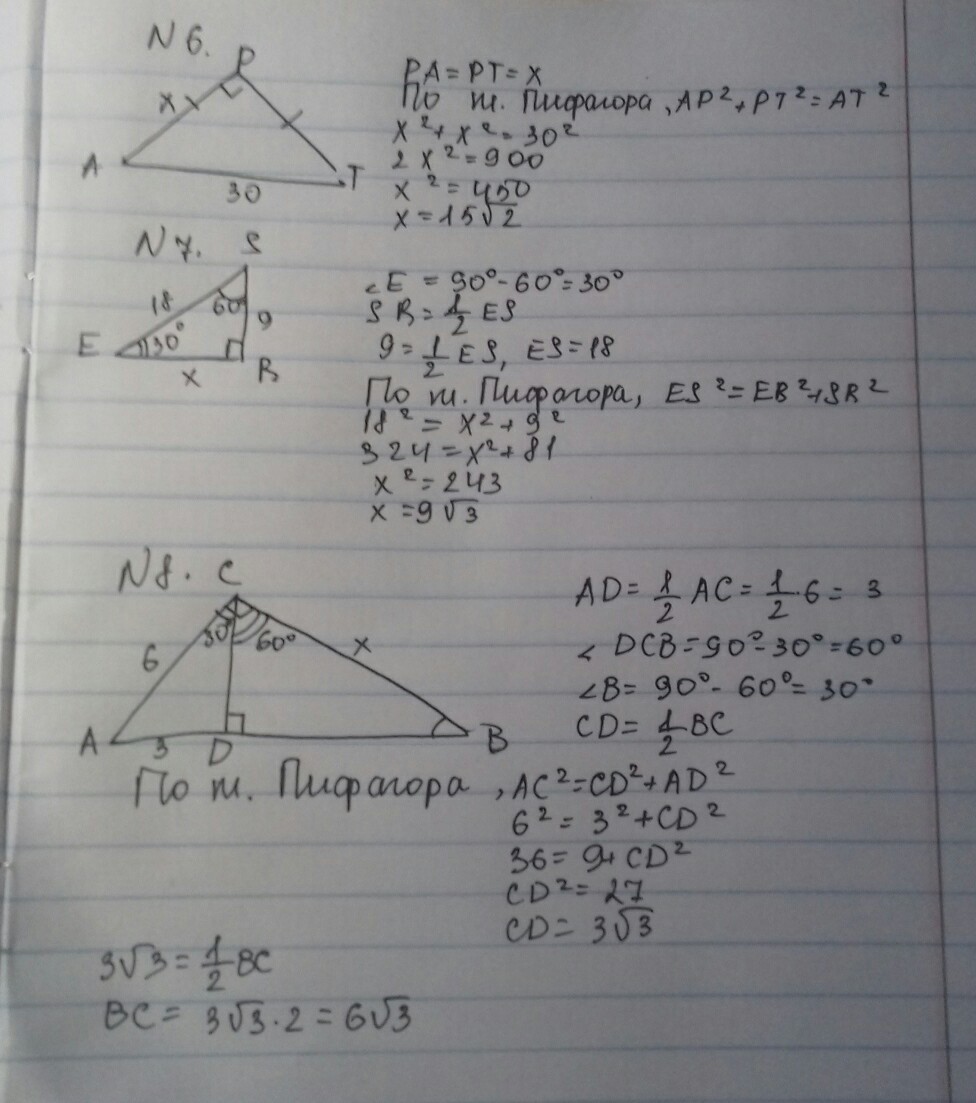 N 6.
P
x
A
T
30
PA = PT = x
По т. Пифагора, AP² + PT² = AT²
x² + x² = 30²
2x² = 900
x² = 450
x = 15√2
N 7.
S
18
60°
9
E
30°
x
R
∠E = 90° - 60° = 30°
SR = 1/2 ES
9 = 1/2 ES, ES = 18
По т. Пифагора, ES² = ER² + SR²
18² = x² + 9²
324 = x² + 81
x² = 243
x = 9√3
N 8.
C
30°
60°
6
x
A
3
D
B
AD = 1/2 AC = 1/2 · 6 = 3
∠DCB = 90° - 30° = 60°
∠B = 90° - 60° = 30°
CD = 1/2 BC
По т. Пифагора, AC² = CD² + AD²
6² = 3² + CD²
36 = 9 + CD²
CD² = 27
CD = 3√3
3√3 = 1/2 BC
BC = 3√3 · 2 = 6√3